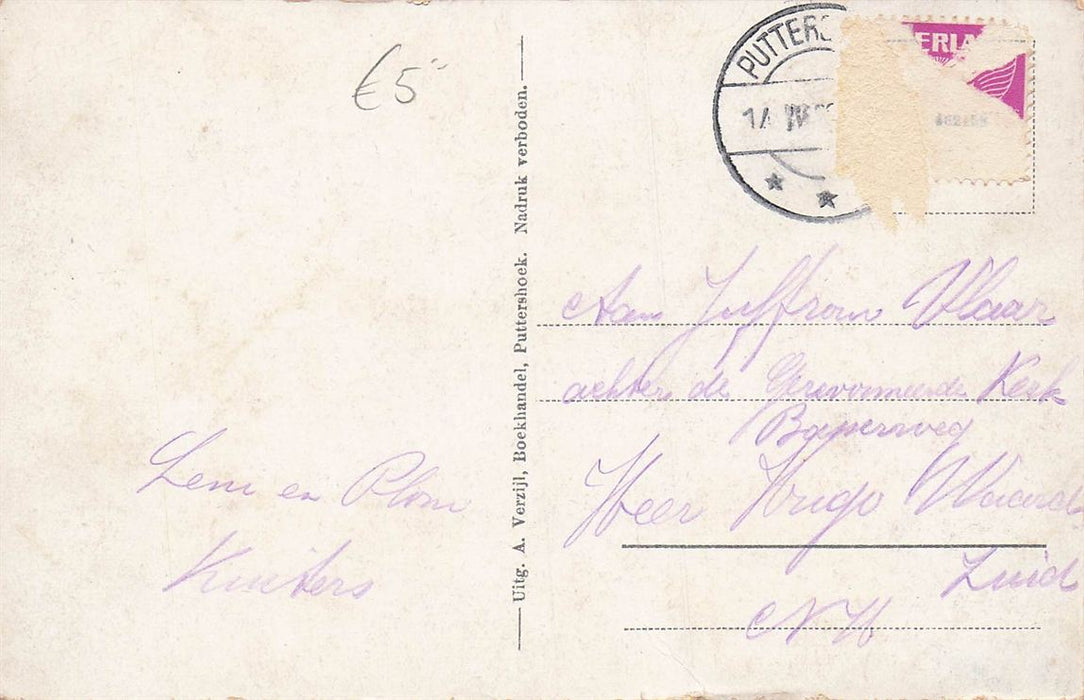 €5-
PUTTERS
ERLA
Uitg. A. Verzijl, Boekhandel, Puttershoek. Nadruk verboden.
Aan Juffrouw Vlaar
achter de Gereformeerde Kerk
Heer Hugo Waard
Zuid
NH
Leni en Plom
Kuiters